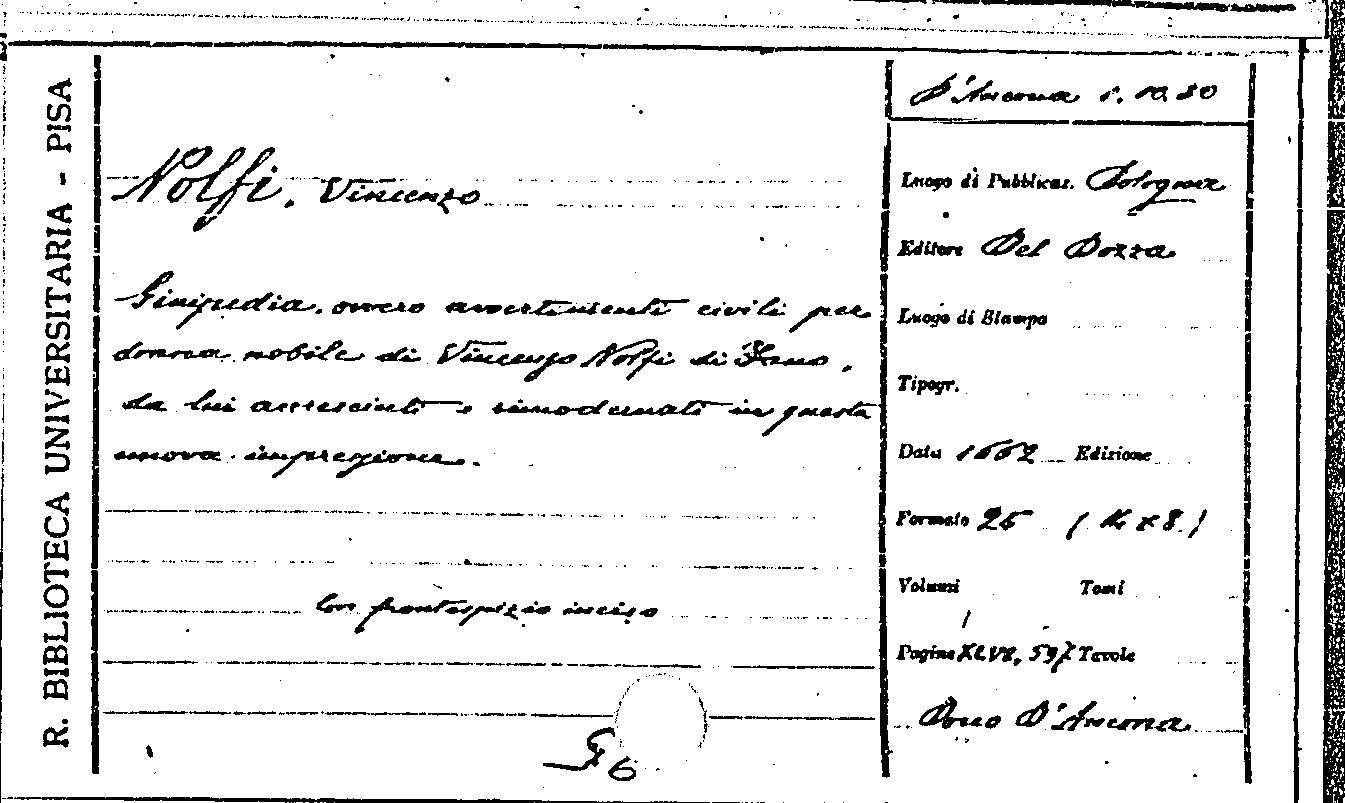 R. BIBLIOTECA UNIVERSITARIA - PISA
D'Ancona 1. 10. 80
Nolfi, Vincenzo
Ginipedia, ovvero avvertimenti civili per
donna nobile di Vincenzo Nolfi di Fano,
da lui accresciuti e rimodernati in questa
nuova impressione.
Con frontespizio inciso
Luogo di Pubblicaz. Bologna
Editore Del Dozza
Luogo di Stampa
Tipogr.
Data 1662 Edizione
Formato 25
Volumi Tomi
Pagine 597 Tavole
Dono D'Ancona